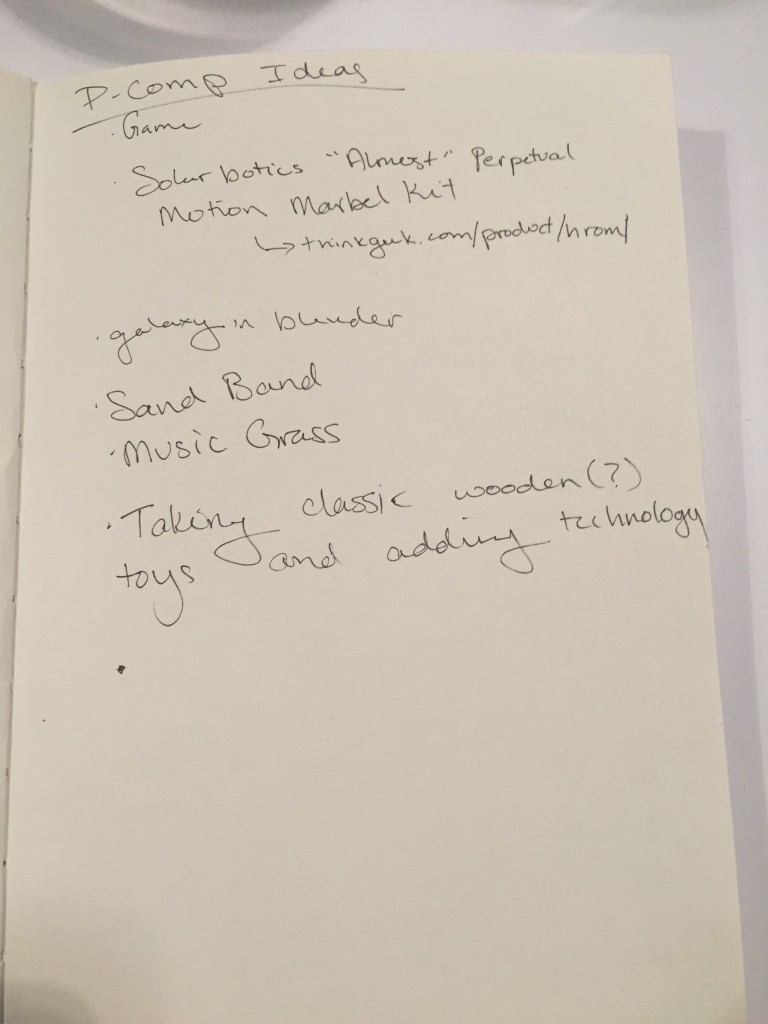 P-Comp Ideas
· Game
· Solarbotics "Almost" Perpetual
Motion Marbel Kit
↳ thinkgeek.com/product/hrom/
· galaxy in blender
· Sand Band
· Music Grass
· Taking classic wooden(?)
toys and adding technology
·